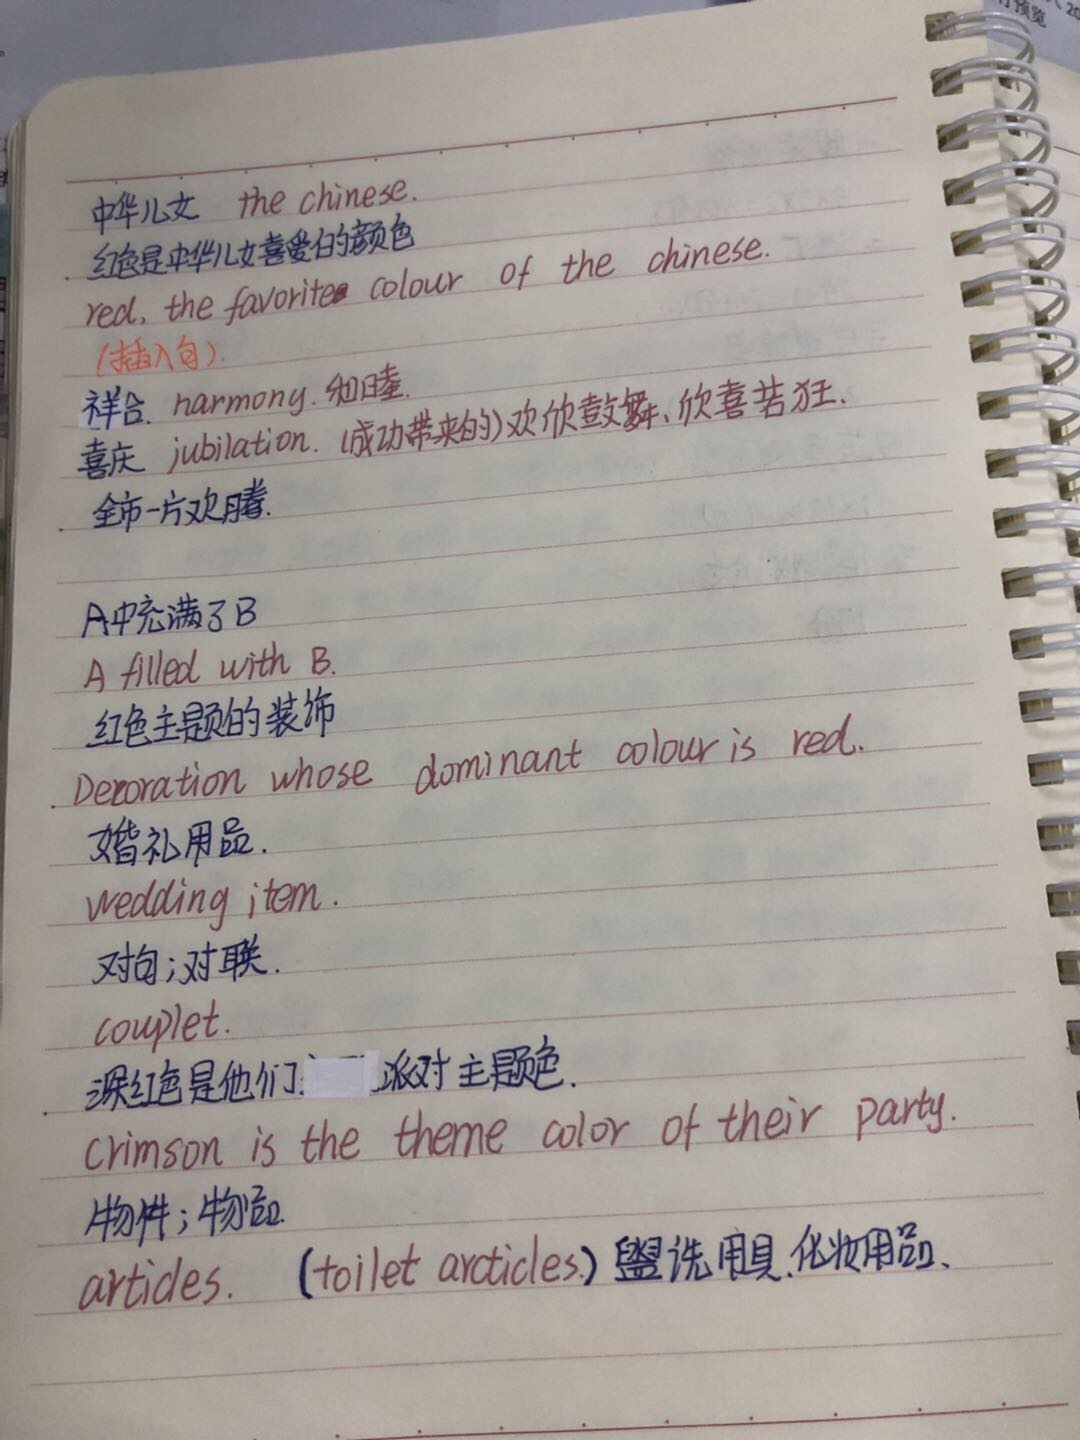 中华儿女 the chinese.
红色是中华儿女喜爱的颜色
red, the favorite colour of the chinese.
(插入句).
祥合. harmony. 和睦.
喜庆 jubilation. (成功带来的)欢欣鼓舞、欣喜若狂.
全市一片欢腾.
A中充满了B
A filled with B.
红色主题的装饰
Decoration whose dominant colour is red.
婚礼用品.
wedding item.
对句;对联.
couplet.
深红色是他们 派对主题色.
Crimson is the theme color of their party.
物件;物品.
articles. (toilet arcticles.) 盥洗用具、化妆用品、